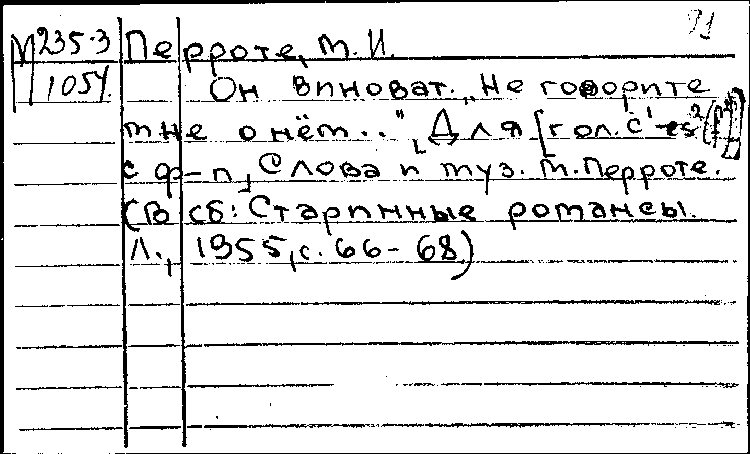 91
М 235-3 Перроте, М. И.
1054 Он виноват. „Не говорите
мне о нём..", Для [гол. c¹-es²(f²)]
с ф-п, Слова и муз. М. Перроте.
(В сб: Старинные романсы.
Л., 1955, с. 66-68)